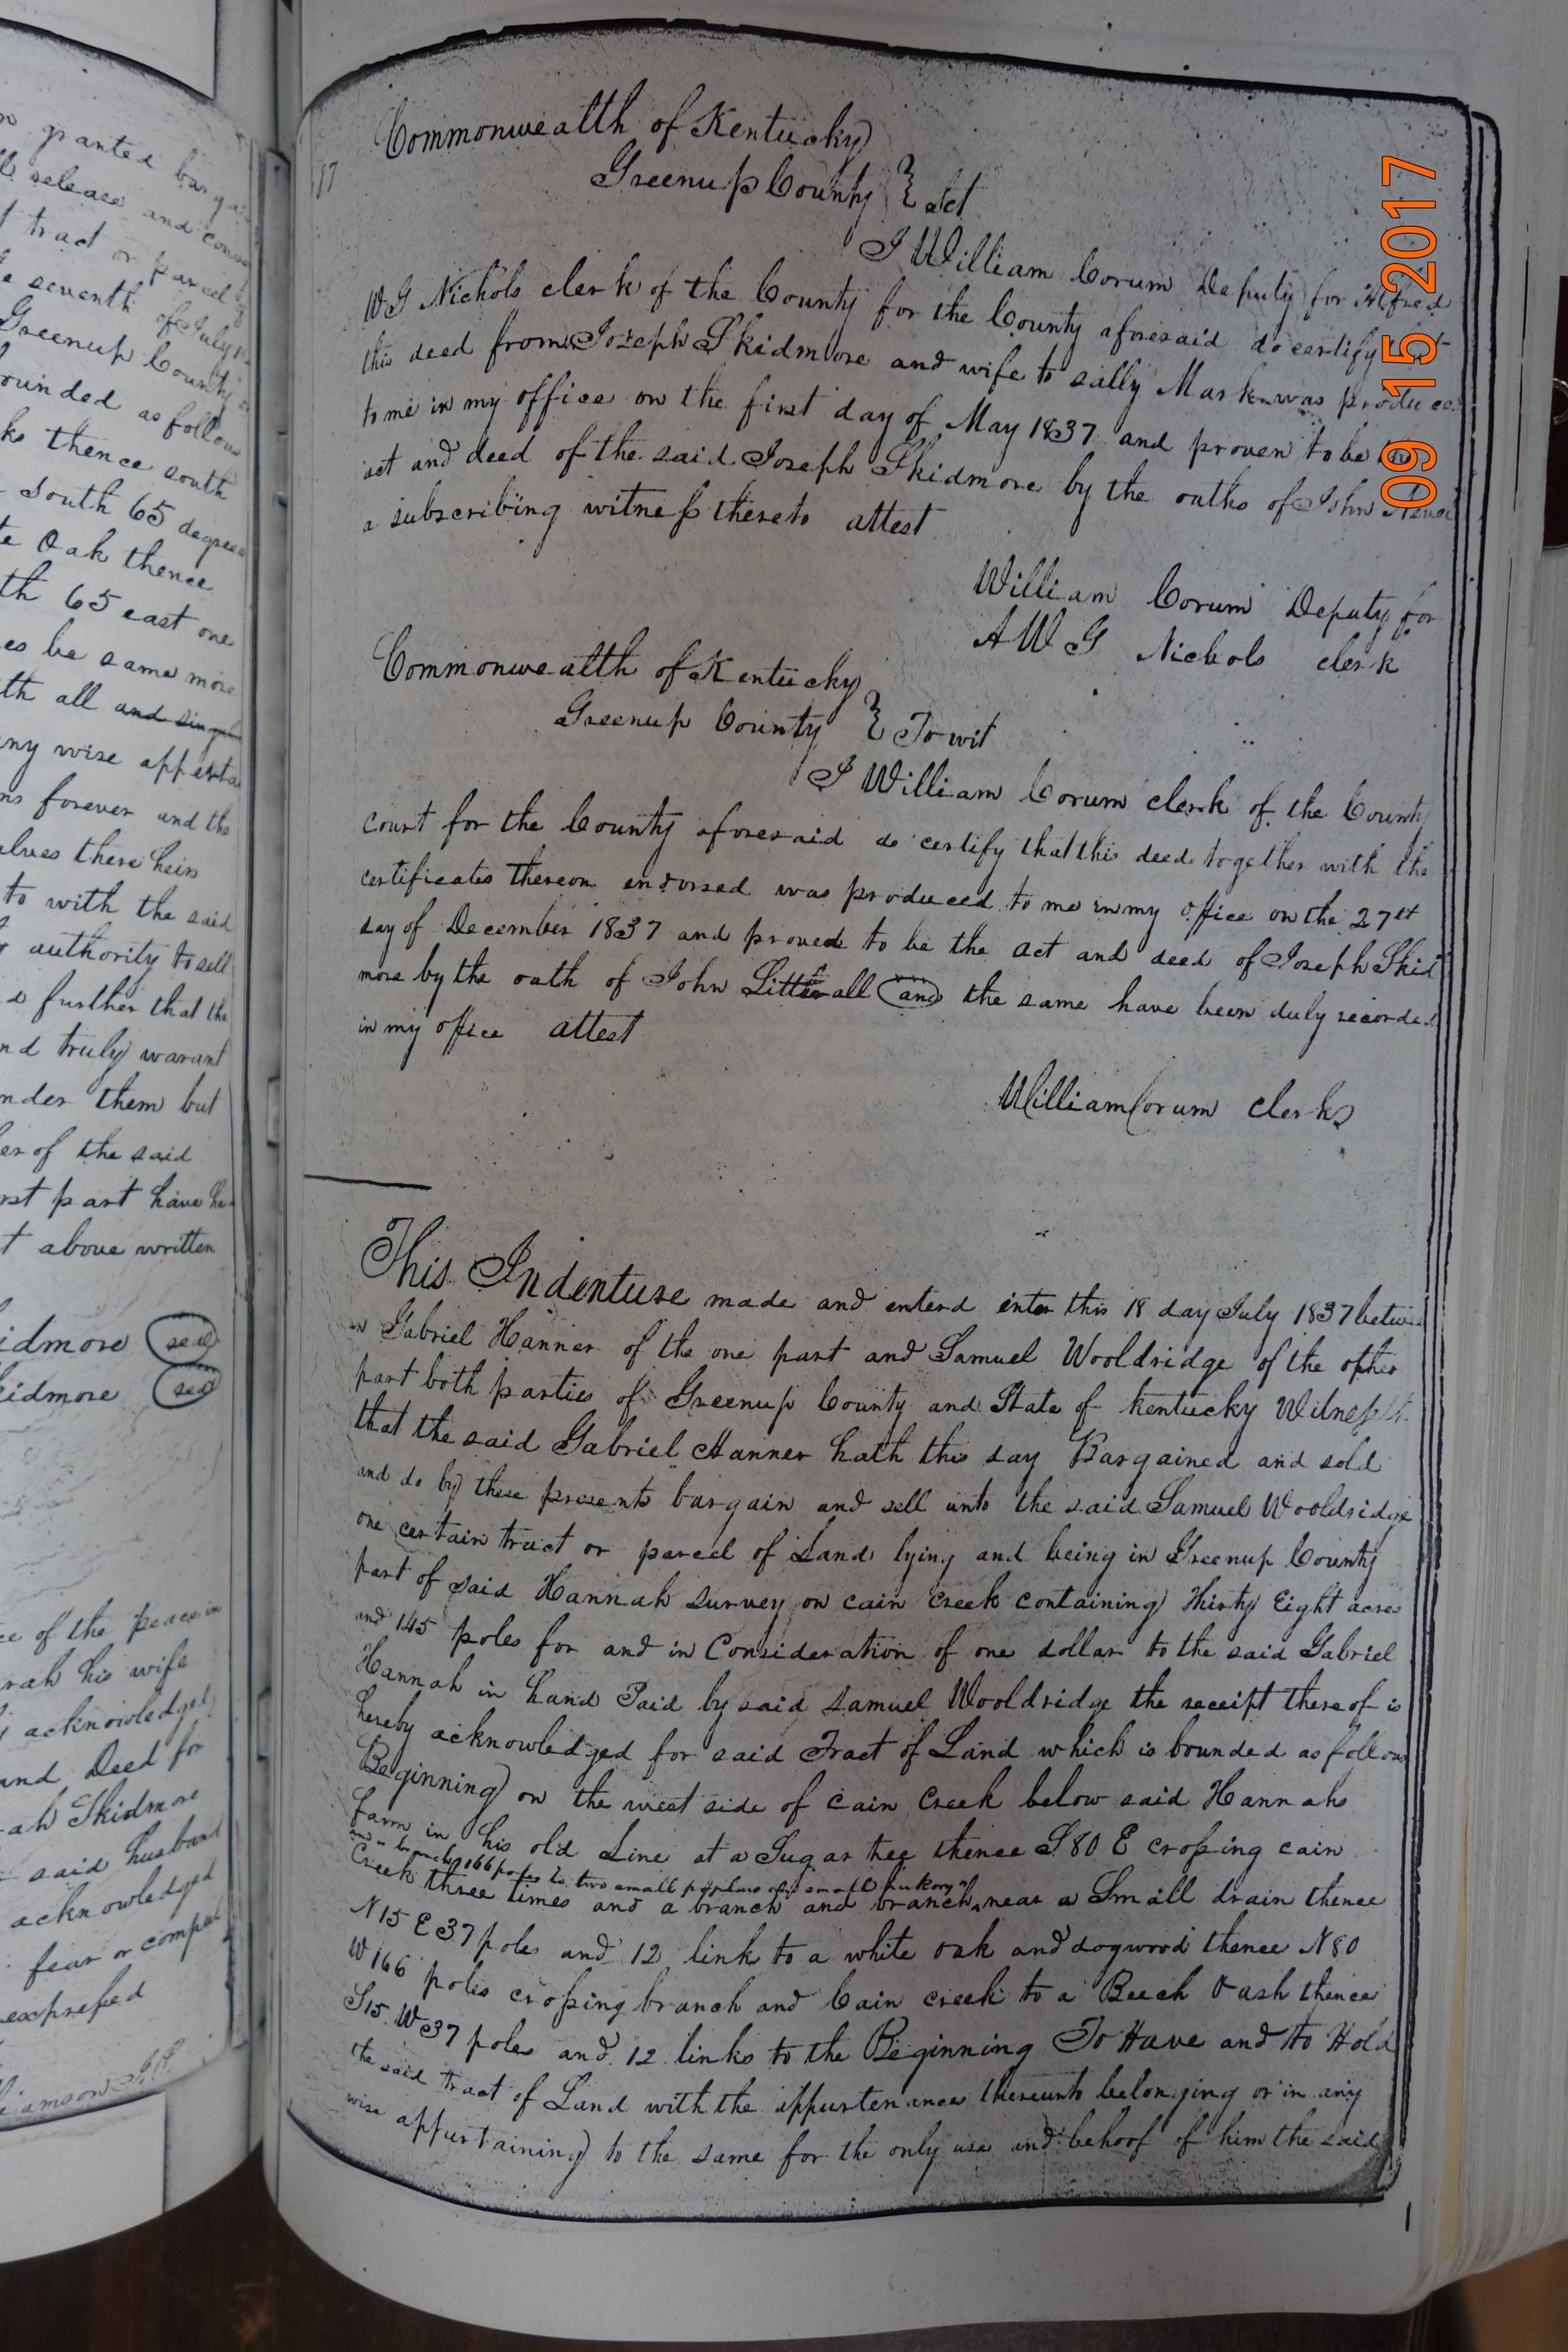 granted bargai
release and conv
tract or parcel
seventh of July
Greenup County
ounded as follows
ks thence south
South 65 degrees
te Oak thence
th 65 east one
es be same more
th all and singul
ny wise apperta
ns forever and the
elves there heirs
to with the said
authority to sell
further that the
nd truly warant
nder them but
er of the said
rst part have he
t above written
idmore seal
kidmore seal
ce of the peace in
rah his wife
acknowledged
and Deed for
ah Skidmore
said husband
acknowledged
fear or compul
expressed
liamson J.P.
17
Commonwealth of Kentucky
Greenup County } sct
I William Corum Deputy for Alfred
W G Nichols clerk of the County for the County aforesaid do certify
this deed from Joseph Skidmore and wife to sally Mark was produced
to me in my office on the first day of May 1837 and proven to be the
act and deed of the said Joseph Skidmore by the oaths of John
a subscribing witness thereto attest
William Corum Deputy for
A W G Nichols clerk
Commonwealth of Kentucky
Greenup County } Towit
I William Corum clerk of the County
court for the County aforesaid do certify that this deed together with the
certificates thereon endorsed was produced to me in my office on the 27st
day of December 1837 and proved to be the act and deed of Joseph Skid
more by the oath of John Litterall and the same have been duly recorded
in my office attest
William Corum clerks
This Indenture made and enterd enter this 18 day July 1837 betwe
n Gabriel Hanner of the one part and Samuel Wooldridge of the other
part both parties of Greenup County and State of Kentucky Witnesseth
that the said Gabriel Hanner hath this day Bargained and sold
and do by these presents bargain and sell unto the said Samuel Wooldridge
one certain tract or parcel of Land lying and being in Greenup County
part of said Hannah survey on cain creek containing Thirty Eight acres
and 145 poles for and in Consideration of one dollar to the said Gabriel
Hannah in hand Paid by said Samuel Wooldridge the receipt thereof is
hereby acknowledged for said Tract of Land which is bounded as follows
Beginning on the west side of cain Creek below said Hannahs
farm in his old Line at a Sugar tree thence S 80 E crossing cain
and a branch 166 poles to two small poplars and small hickory
Creek three times and a branch and branch near a Small drain thence
N 15 E 37 poles and 12 link to a white oak and dogwood thence N 80
W 166 poles crossing branch and Cain creek to a Beech & ash thence
S 15 W 37 poles and 12 links to the Beginning To Have and to Hold
the said tract of Land with the appurtenances thereunto belonging or in any
wise appurtaining to the same for the only use and behoof of him the said
09 15 2017